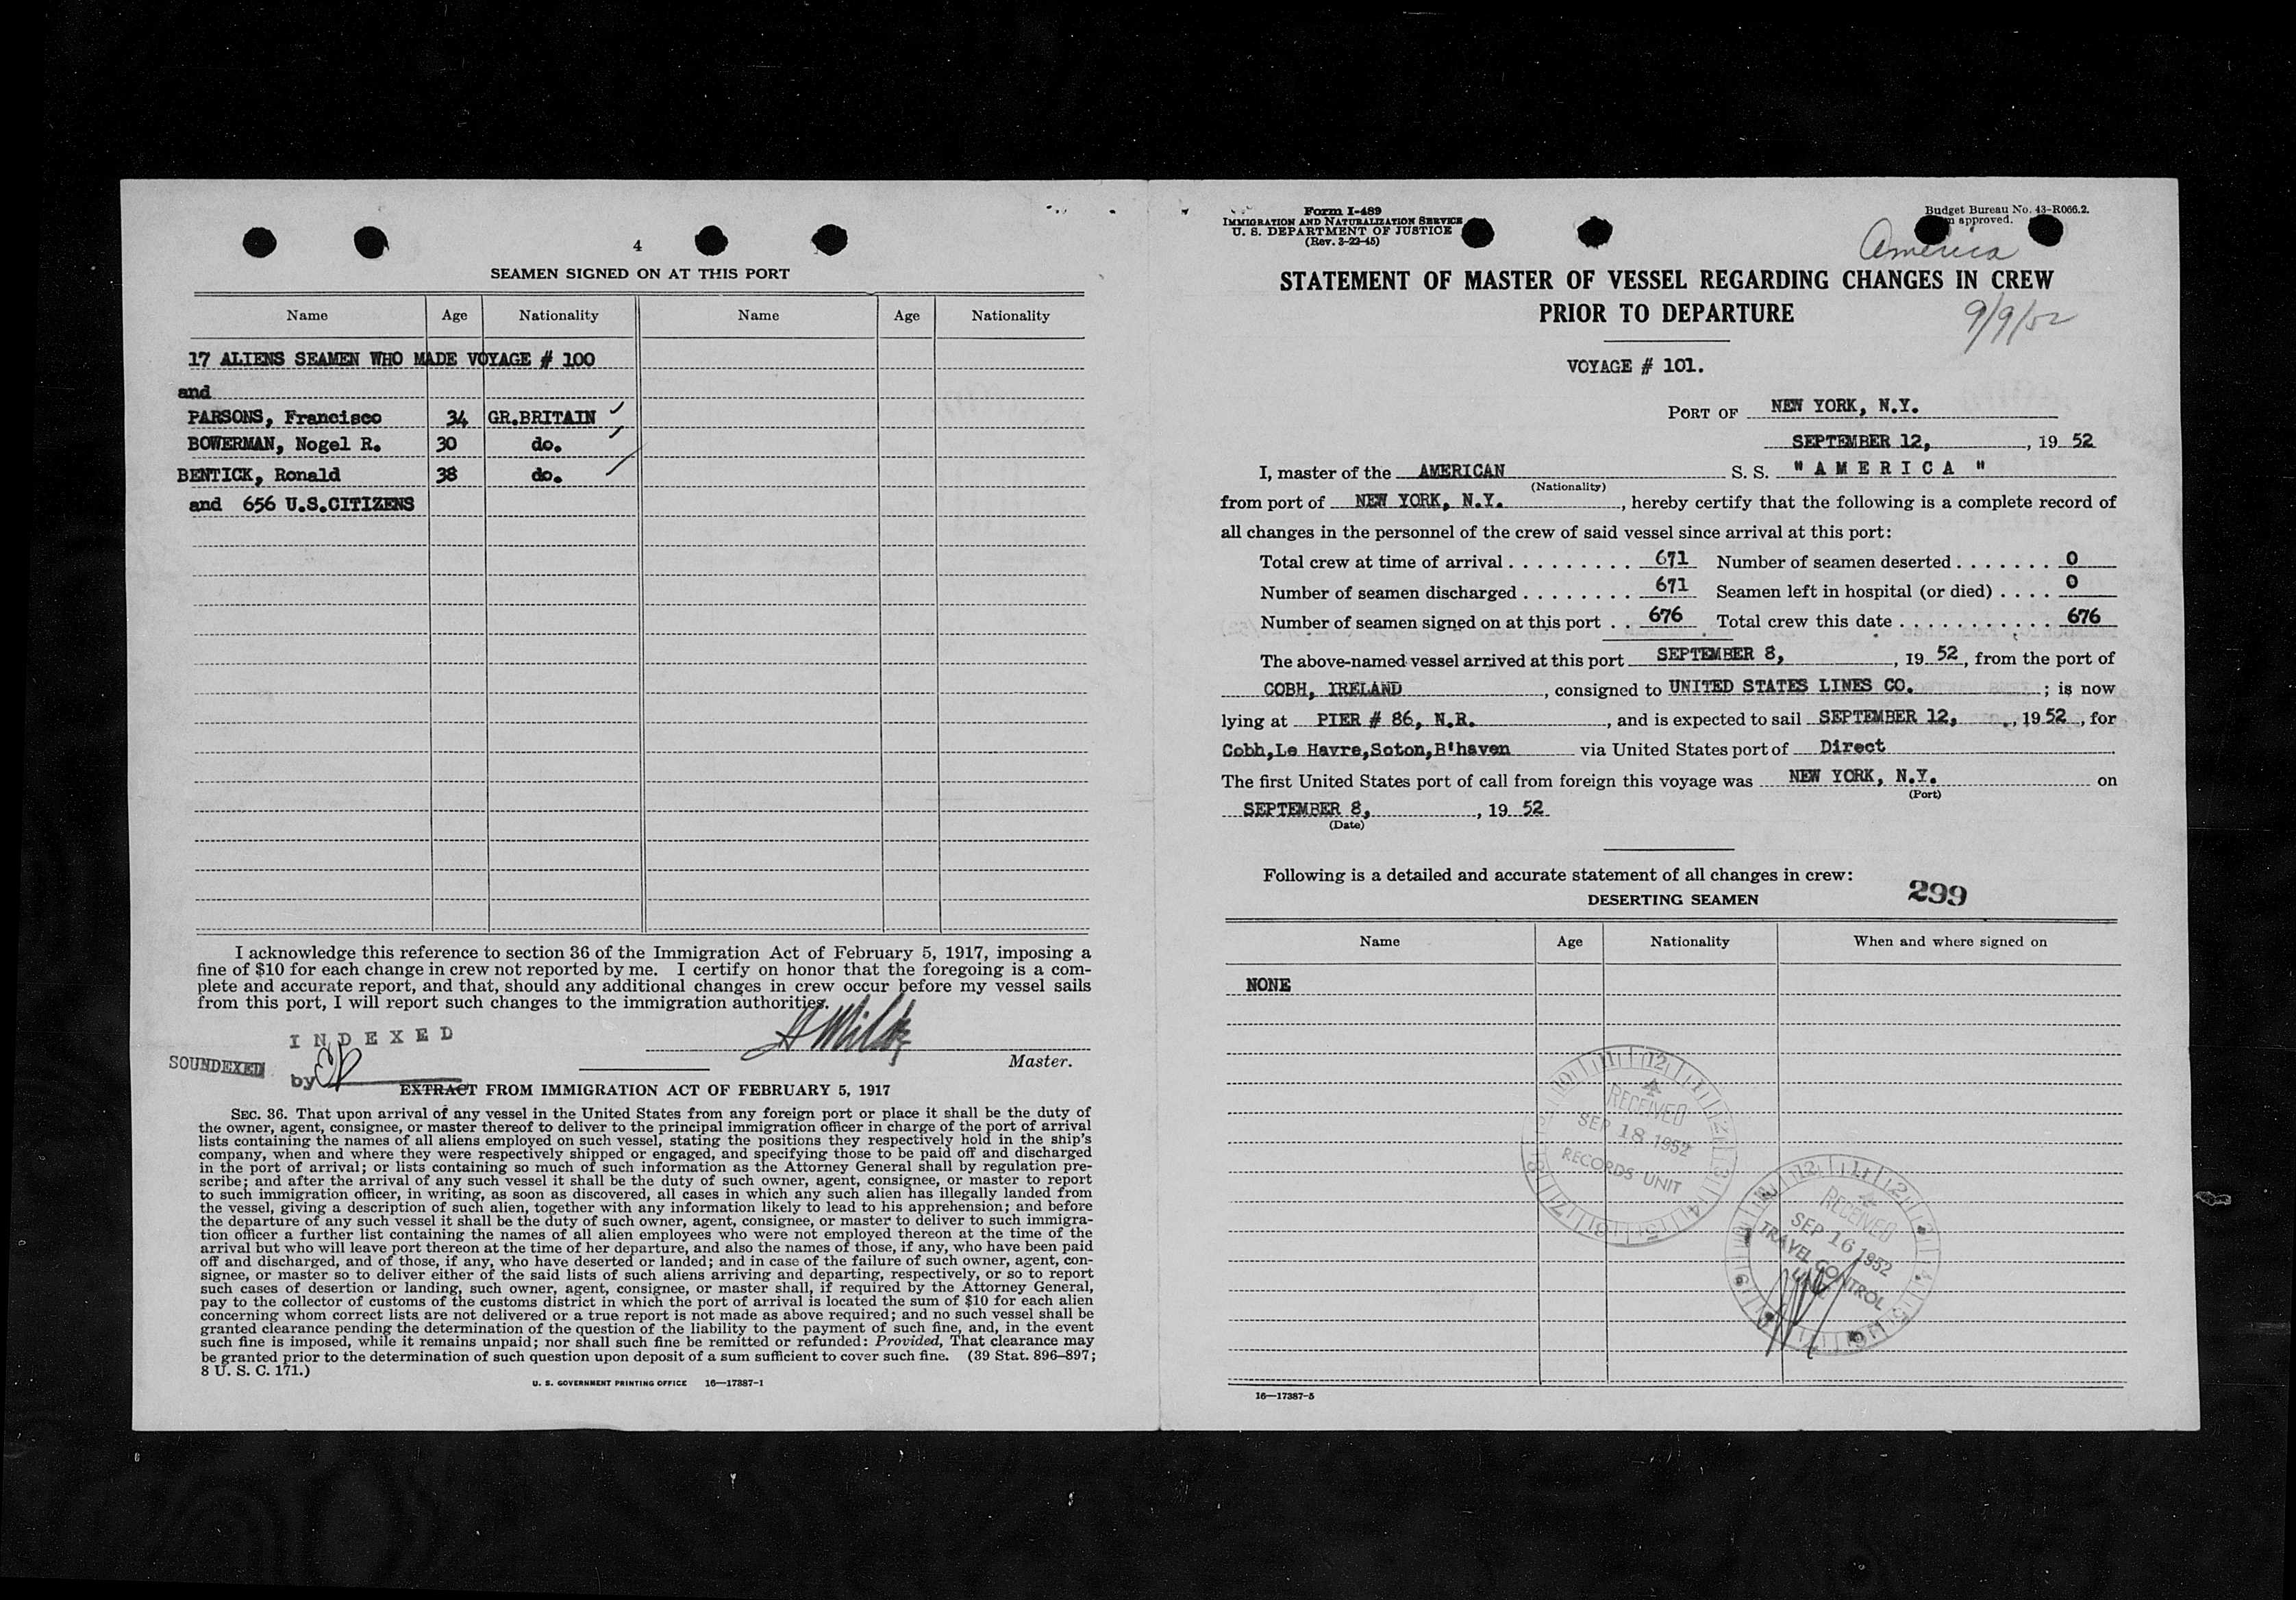 4
SEAMEN SIGNED ON AT THIS PORT
Name Age Nationality Name Age Nationality
17 ALIENS SEAMEN WHO MADE VOYAGE # 100
and
PARSONS, Francisco 34 GR.BRITAIN ✓
BOWERMAN, Nogel R. 30 do. ✓
BENTICK, Ronald 38 do. ✓
and 656 U.S.CITIZENS
I acknowledge this reference to section 36 of the Immigration Act of February 5, 1917, imposing a
fine of $10 for each change in crew not reported by me. I certify on honor that the foregoing is a com-
plete and accurate report, and that, should any additional changes in crew occur before my vessel sails
from this port, I will report such changes to the immigration authorities.
INDEXED
SOUNDEXED
by
Master.
EXTRACT FROM IMMIGRATION ACT OF FEBRUARY 5, 1917
SEC. 36. That upon arrival of any vessel in the United States from any foreign port or place it shall be the duty of
the owner, agent, consignee, or master thereof to deliver to the principal immigration officer in charge of the port of arrival
lists containing the names of all aliens employed on such vessel, stating the positions they respectively hold in the ship's
company, when and where they were respectively shipped or engaged, and specifying those to be paid off and discharged
in the port of arrival; or lists containing so much of such information as the Attorney General shall by regulation pre-
scribe; and after the arrival of any such vessel it shall be the duty of such owner, agent, consignee, or master to report
to such immigration officer, in writing, as soon as discovered, all cases in which any such alien has illegally landed from
the vessel, giving a description of such alien, together with any information likely to lead to his apprehension; and before
the departure of any such vessel it shall be the duty of such owner, agent, consignee, or master to deliver to such immigra-
tion officer a further list containing the names of all alien employees who were not employed thereon at the time of the
arrival but who will leave port thereon at the time of her departure, and also the names of those, if any, who have been paid
off and discharged, and of those, if any, who have deserted or landed; and in case of the failure of such owner, agent, con-
signee, or master so to deliver either of the said lists of such aliens arriving and departing, respectively, or so to report
such cases of desertion or landing, such owner, agent, consignee, or master shall, if required by the Attorney General,
pay to the collector of customs of the customs district in which the port of arrival is located the sum of $10 for each alien
concerning whom correct lists are not delivered or a true report is not made as above required; and no such vessel shall be
granted clearance pending the determination of the question of the liability to the payment of such fine, and, in the event
such fine is imposed, while it remains unpaid; nor shall such fine be remitted or refunded: Provided, That clearance may
be granted prior to the determination of such question upon deposit of a sum sufficient to cover such fine. (39 Stat. 896–897;
8 U. S. C. 171.)
U. S. GOVERNMENT PRINTING OFFICE 16—17387-1
Form I-489
IMMIGRATION AND NATURALIZATION SERVICE
U. S. DEPARTMENT OF JUSTICE
(Rev. 3-22-45)
Budget Bureau No. 43-R066.2.
approved.
America
STATEMENT OF MASTER OF VESSEL REGARDING CHANGES IN CREW
PRIOR TO DEPARTURE
9/9/52
VOYAGE # 101.
PORT OF NEW YORK, N.Y.
SEPTEMBER 12, , 19 52
I, master of the AMERICAN S. S. " A M E R I C A "
(Nationality)
from port of NEW YORK, N.Y. , hereby certify that the following is a complete record of
all changes in the personnel of the crew of said vessel since arrival at this port:
Total crew at time of arrival . . . . . . . . . 671 Number of seamen deserted . . . . . . . 0
Number of seamen discharged . . . . . . . . 671 Seamen left in hospital (or died) . . . . 0
Number of seamen signed on at this port . . 676 Total crew this date . . . . . . . . . . . 676
The above-named vessel arrived at this port SEPTEMBER 8, , 19 52, from the port of
COBH, IRELAND , consigned to UNITED STATES LINES CO. ; is now
lying at PIER # 86, N.R. , and is expected to sail SEPTEMBER 12, , 19 52 , for
Cobh,Le Havre,Soton,B'haven via United States port of Direct
The first United States port of call from foreign this voyage was NEW YORK, N.Y. on
(Port)
SEPTEMBER 8, , 19 52
(Date)
Following is a detailed and accurate statement of all changes in crew:
299
DESERTING SEAMEN
Name Age Nationality When and where signed on
NONE
RECEIVED
SEP 18 1952
RECORDS UNIT
RECEIVED
SEP 16 1952
TRAVEL CONTROL
16—17387-5